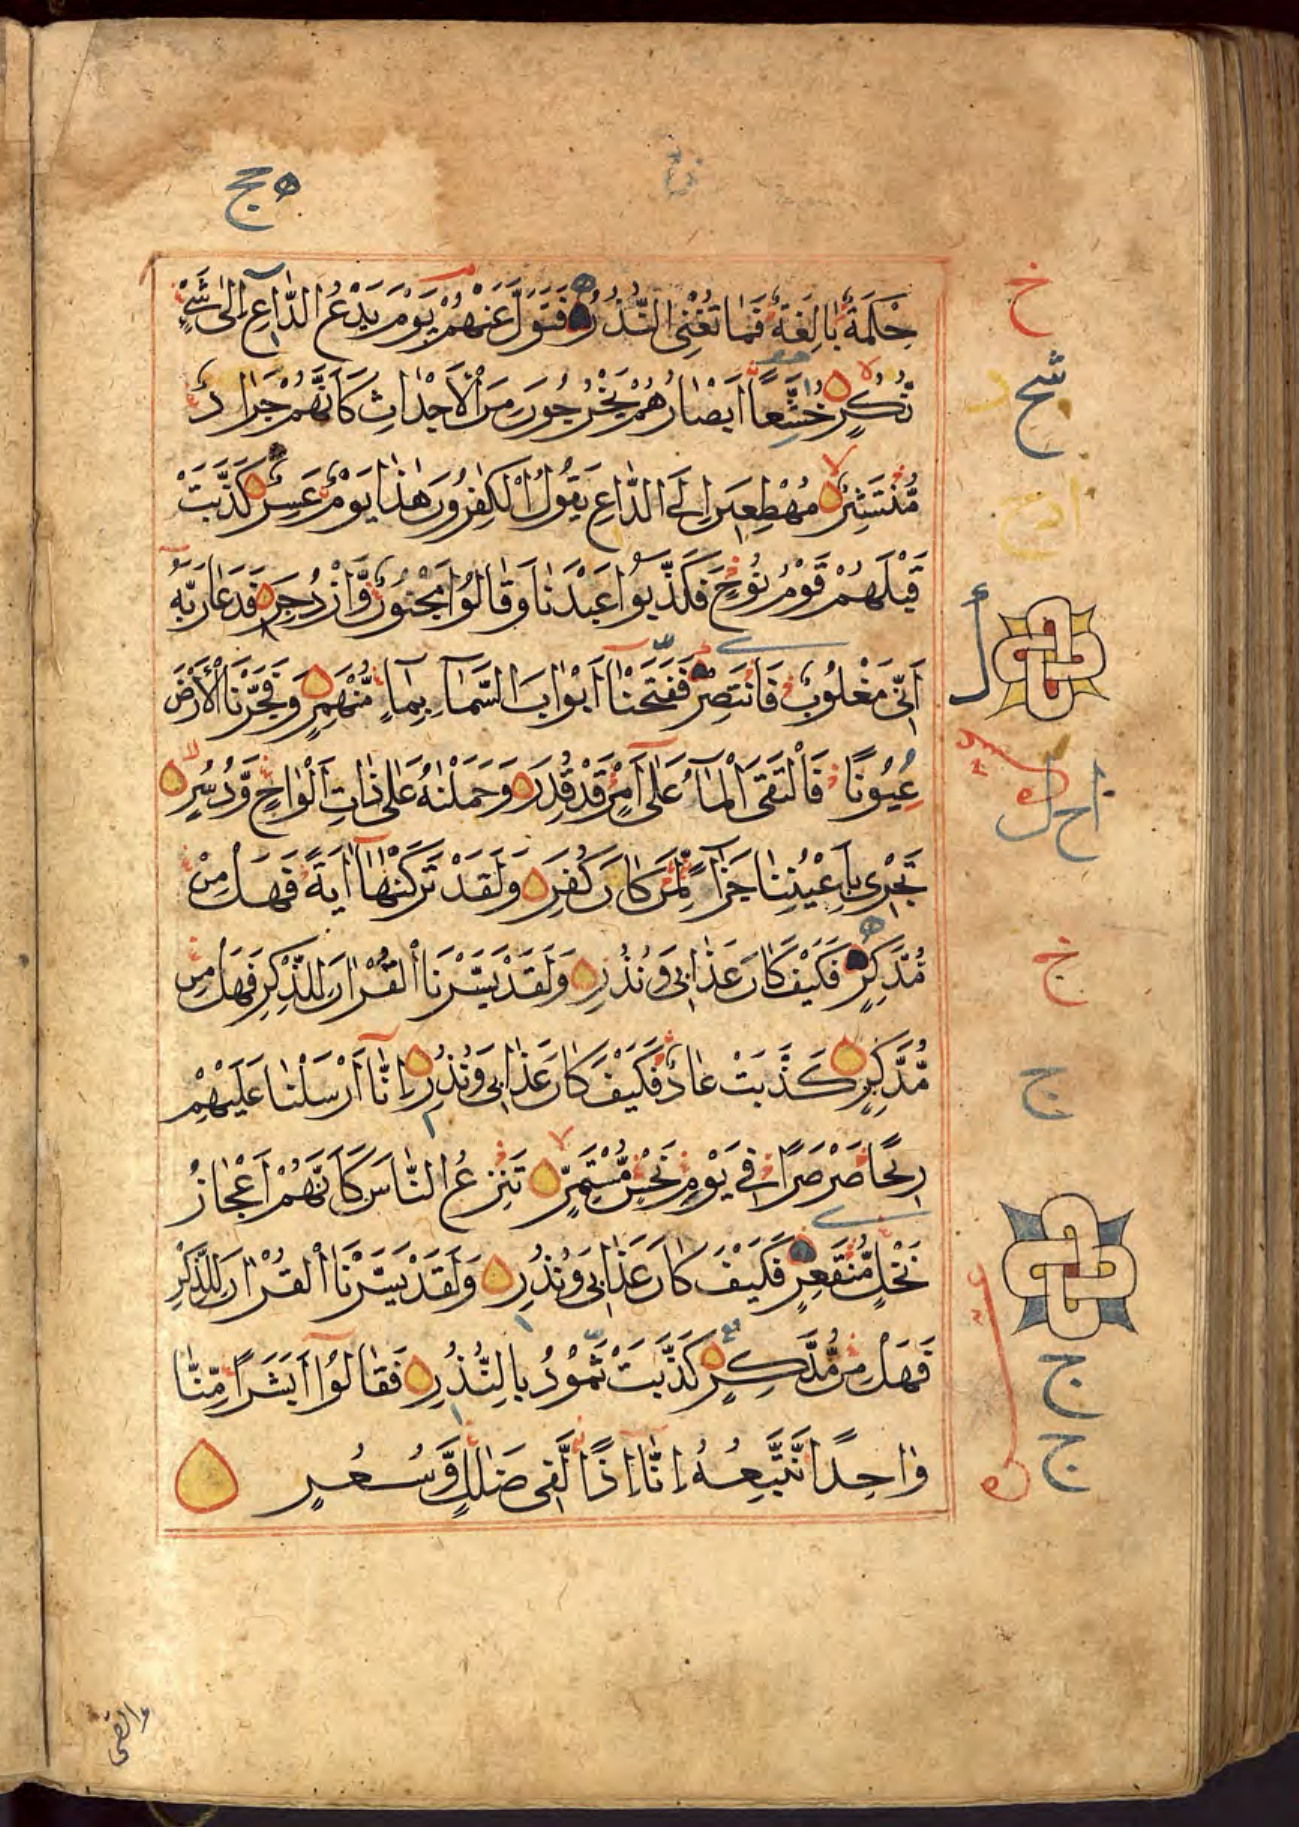 ه حج
حِكْمَةٌ بَالِغَةٌ فَمَا تُغْنِى النُّذُرُ فَتَوَلَّ عَنْهُمْ يَوْمَ يَدْعُ الدَّاعِ اِلٰى شَىْءٍ
نُّكُرٍ خُشَّعًا اَبْصَارُهُمْ يَخْرُجُونَ مِنَ الْاَجْدَاثِ كَاَنَّهُمْ جَرَادٌ
مُّنْتَشِرٌ مُهْطِعِينَ اِلَى الدَّاعِ يَقُولُ الْكٰفِرُونَ هٰذَا يَوْمٌ عَسِرٌ كَذَّبَتْ
قَبْلَهُمْ قَوْمُ نُوحٍ فَكَذَّبُوا عَبْدَنَا وَقَالُوا مَجْنُونٌ وَّازْدُجِرَ فَدَعَا رَبَّهُ
اَنِّى مَغْلُوبٌ فَانْتَصِرْ فَفَتَحْنَا اَبْوَابَ السَّمَآءِ بِمَآءٍ مُّنْهَمِرٍ وَفَجَّرْنَا الْاَرْضَ
عُيُونًا فَالْتَقَى الْمَآءُ عَلٰى اَمْرٍ قَدْ قُدِرَ وَحَمَلْنٰهُ عَلٰى ذَاتِ اَلْوَاحٍ وَّدُسُرٍ
تَجْرِى بِاَعْيُنِنَا جَزَآءً لِّمَنْ كَانَ كُفِرَ وَلَقَدْ تَرَكْنٰهَا اٰيَةً فَهَلْ مِنْ
مُّدَّكِرٍ فَكَيْفَ كَانَ عَذَابِى وَنُذُرِ وَلَقَدْ يَسَّرْنَا الْقُرْاٰنَ لِلذِّكْرِ فَهَلْ مِنْ
مُّدَّكِرٍ كَذَّبَتْ عَادٌ فَكَيْفَ كَانَ عَذَابِى وَنُذُرِ اِنَّا اَرْسَلْنَا عَلَيْهِمْ
رِيحًا صَرْصَرًا فِى يَوْمِ نَحْسٍ مُّسْتَمِرٍّ تَنْزِعُ النَّاسَ كَاَنَّهُمْ اَعْجَازُ
نَخْلٍ مُّنْقَعِرٍ فَكَيْفَ كَانَ عَذَابِى وَنُذُرِ وَلَقَدْ يَسَّرْنَا الْقُرْاٰنَ لِلذِّكْرِ
فَهَلْ مِنْ مُّدَّكِرٍ كَذَّبَتْ ثَمُودُ بِالنُّذُرِ فَقَالُوا اَبَشَرًا مِّنَّا
وَاحِدًا نَّتَّبِعُهُ اِنَّا اِذًا لَّفِى ضَلٰلٍ وَّسُعُرٍ
خ
ج
ج
ج
ج